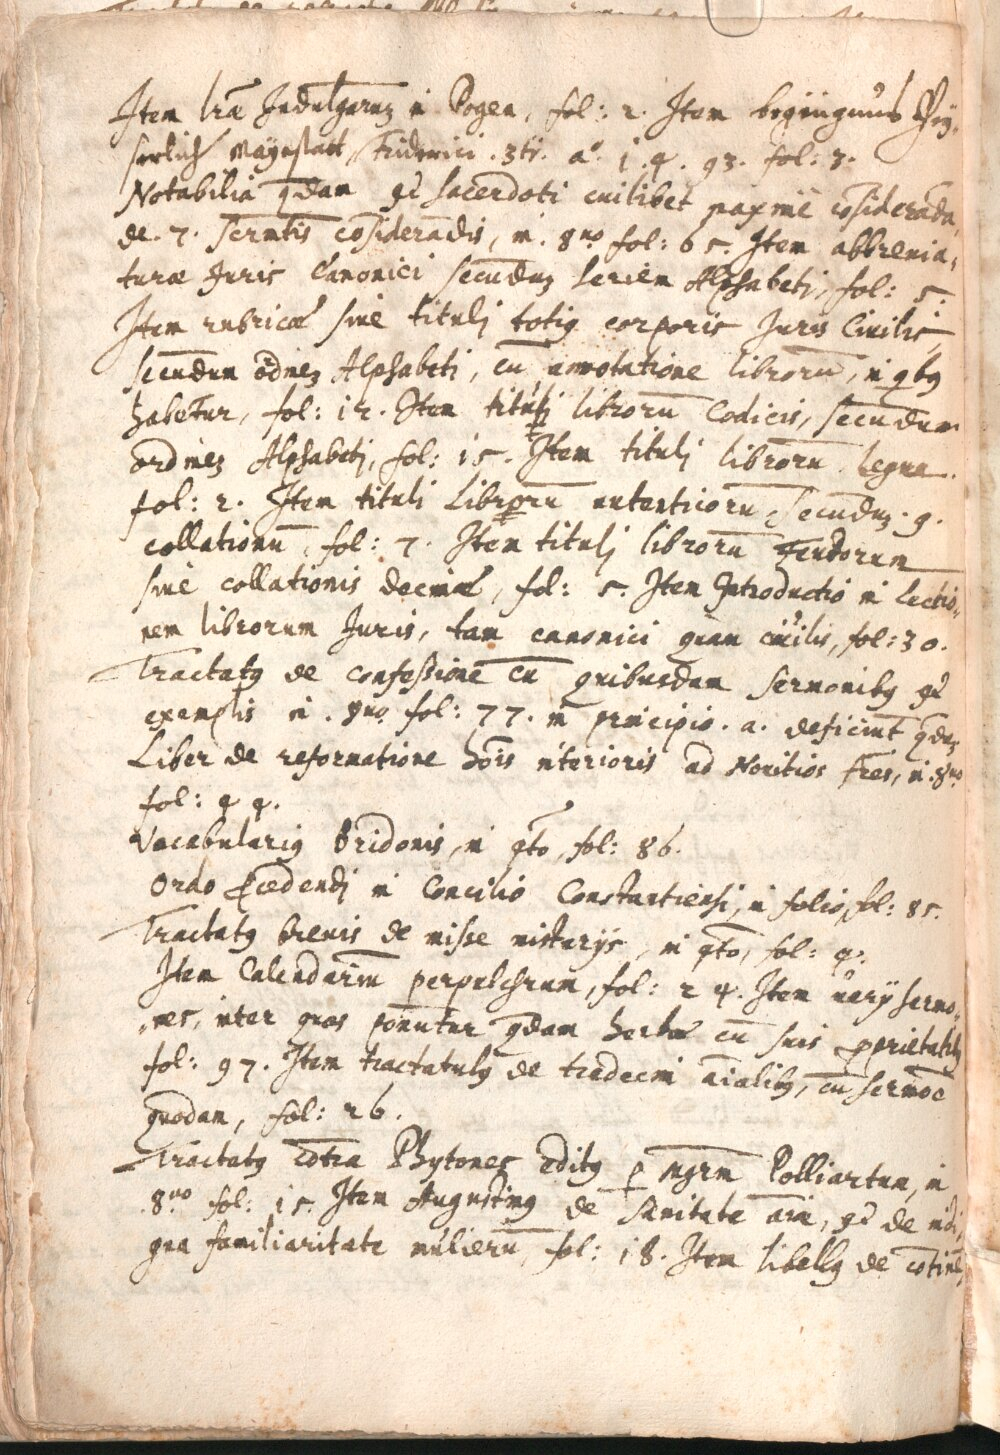 Item lr̄a Indulgentz in Bogen, fol: 2. Item begängnus Khey-
serlich Mayestatt, Friderici .3tij. a°. j.4.93. fol: 3.
Notabilia q̄dam et sacerdoti cuilibet maxime cōsideranda,
de .7. sacramētis cōsiderādis, in .8uo fol: 65. Item abbrevia-
turæ Juris Canonici secundum seriem Alphabeti, fol: 5.
Item rubricæ sive tituli totiq corporis Juris Civilis,
secundum ōdinez Alphabeti, cū annotatione librorū, in qbq
habetur, fol: 12. Item tituli librorū Codicis, secundum
ordinez Alphabeti, fol: 15. Item tituli librorū legum.
fol: 2. Item tituli librorū autenticorū secundum .9.
collationū, fol: 7. Item tituli librorū Feudorum
sive collationis decimæ, fol: 5. Item Introductio in lectio-
nem librorum Juris, tam canonici quam civilis, fol: 30.
Tractatq de confessione cū quibusdam sermonibq et
exemplis in .8uo fol: 77. in principio .a. deficiunt q̄dam
Liber de reformatione hōis interioris ad Novitios fr̄es, in .8uo
fol: 44.
Vocabulariq Bridonis, in qto, fol: 86.
Ordo procedendi in Concilio Constantiensi, in folio, fol: 85.
Tractatq brevis de misse misterijs, in qto, fol: 4.
Item Calendariū perpulchrum, fol: 24. Item varij sermo-
nes, inter quos ponūtur q̄dam herbæ cū suis proprietatibq
fol: 97. Item tractatulq de tredecim aīalibq, cū sermoē
quodam, fol: 26.
Tractatq cōtra Phytones editq p mgr̄m Molliartum, in
.8uo fol: 15. Item Augustinq de sanitate aīæ, et de indi-
gna familiaritate mulierū, fol: 18. Item libellq de cōtinē-